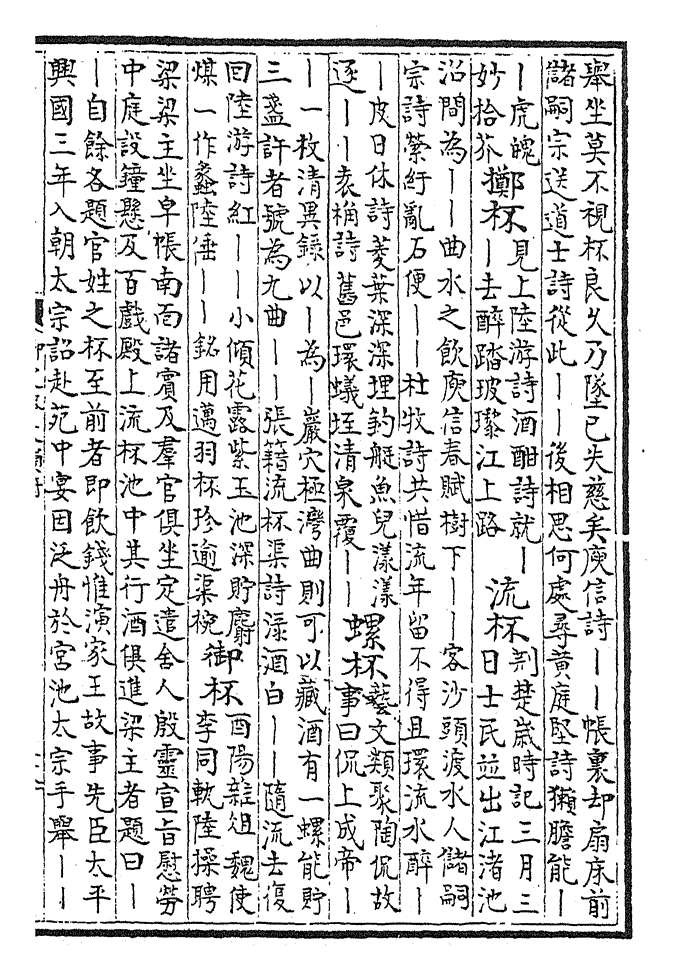 舉坐莫不視杯良久乃墜已失慈矣庾信詩——帳裏却扇床前
儲嗣宗送道士詩從此——後相思何處尋黄庭堅詩獺膽能—
—虎魄
妙拾芥
擲杯
見上陸游詩酒酣詩就—
—去醉踏玻瓈江上路
流杯
荆楚歲時記三月三
日士民並出江渚池
沼間為——曲水之飲庾信春賦樹下——客沙頭渡水人儲嗣
宗詩縈紆亂石便——杜牧詩共惜流年留不得且環流水醉—
—皮日休詩菱葉深深埋釣艇魚兒漾漾
逐——袁桷詩舊邑環蟻垤清泉覆——
螺杯
藝文類聚陶侃故
事曰侃上成帝—
—一枚清異錄以—為—巖穴極灣曲則可以藏酒有一螺能貯
三盞許者號為九曲——張籍流杯渠詩渌酒白——隨流去復
回陸游詩紅——小傾花露紫玉池深貯麝
煤一作蠡陸倕——銘用邁羽杯珍逾渠椀
御杯
酉陽雜俎魏使
李同軌陸操聘
梁梁主坐皁帳南面諸賓及羣官俱坐定遣舍人殷靈宣旨慰勞
中庭設鐘懸及百戲殿上流杯池中其行酒俱進梁主者題曰—
—自餘各題官姓之杯至前者即飲錢惟演家王故事先臣太平
興國三年入朝太宗詔赴苑中宴因泛舟於宮池太宗手舉——